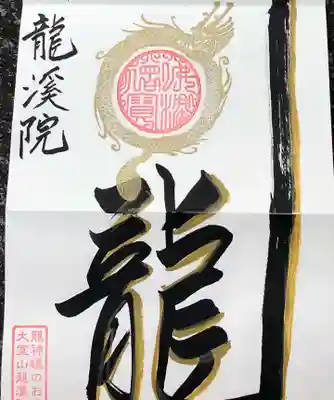 龍溪院
龍
龍神様のお
大雲山龍溪